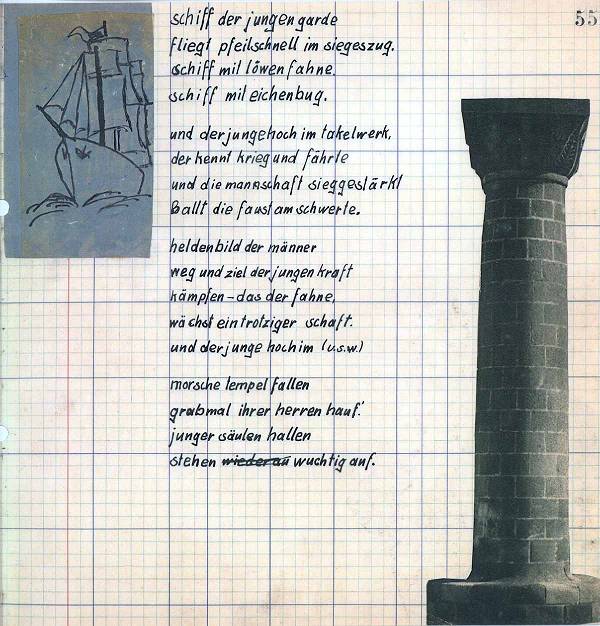 55
schiff der jungen garde
fliegt pfeilschnell im siegeszug.
schiff mit löwenfahne.
schiff mit eichenbug.
und der junge hoch im takelwerk,
der kennt krieg und fährte
und die mannschaft sieggestärkt
Ballt die faust am schwerte.
heldenbild der männer
weg und ziel der jungen kraft
kämpfen – das der fahne,
wächst ein trotziger schaft.
und der junge hoch im (u.s.w.)
morsche tempel fallen
grabmal ihrer herren hauf!
junger säulen hallen
stehen wieder au wuchtig auf.